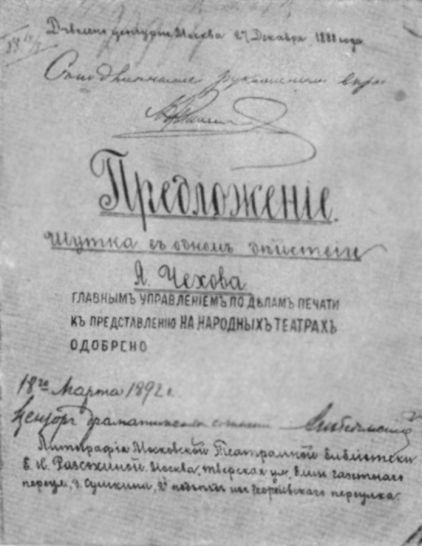 Дозволено цензурою, Москва 27 Декабря 1888 года
С подлинным верно
Предложеніе.
Шутка въ одномъ дѣйствіи
А. Чехова
ГЛАВНЫМЪ УПРАВЛЕНІЕМЪ ПО ДѢЛАМЪ ПЕЧАТИ
КЪ ПРЕДСТАВЛЕНІЮ НА НАРОДНЫХЪ ТЕАТРАХЪ
ОДОБРЕНО
18го Марта 1892 г.
Цензоръ драматическихъ
Литографія Московской Театральной Библіотеки
Е. Н. Разсохиной. Москва, Тверская ул., близъ газетнаго
переул., д. Сушкина, 2й подъѣздъ изъ Георгіевскаго переулка.